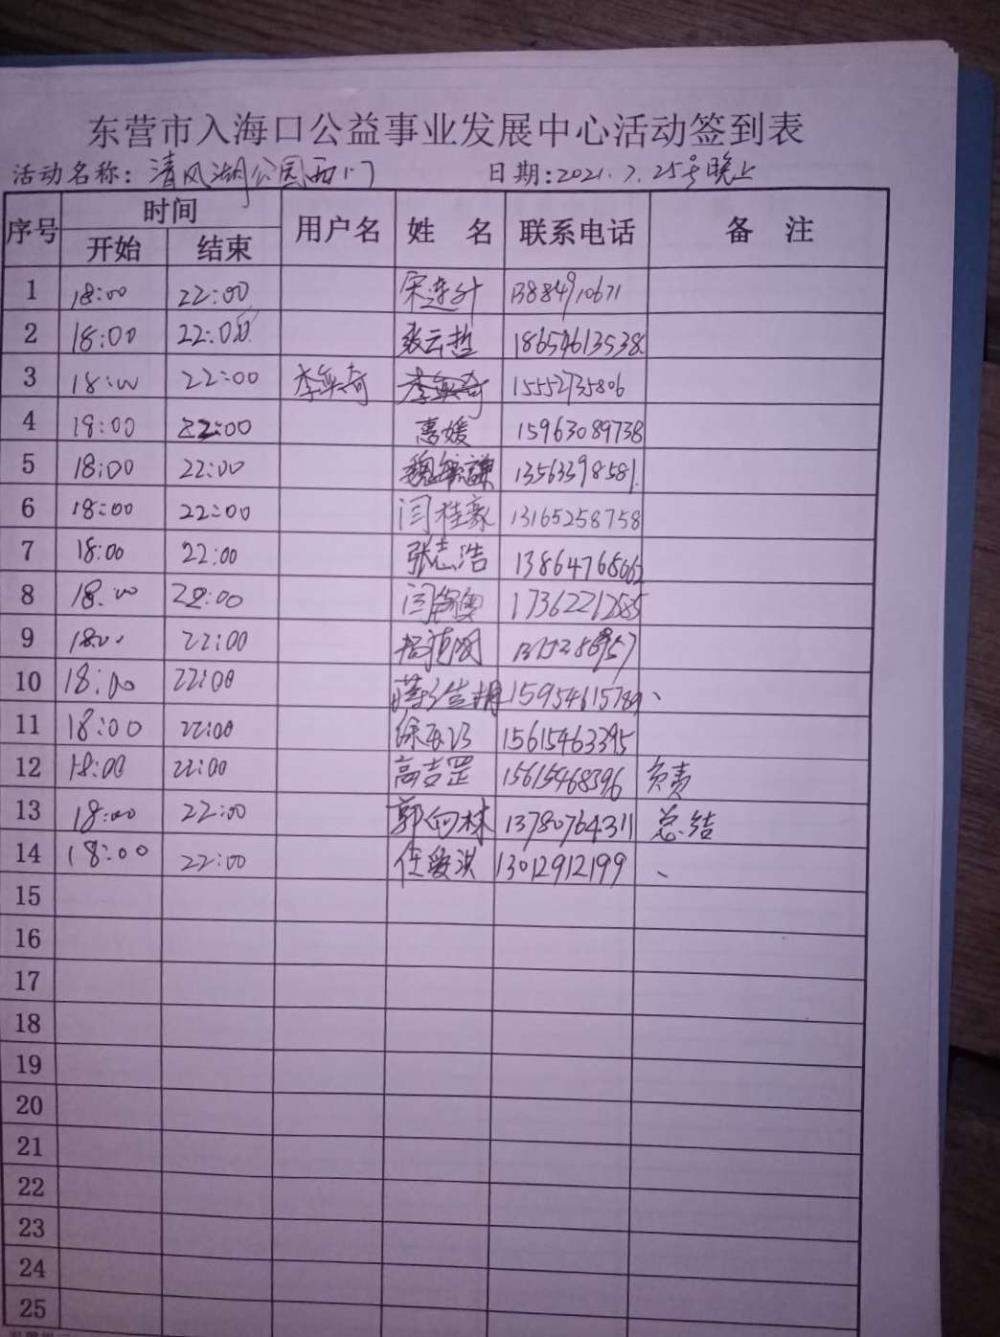 东营市入海口公益事业发展中心活动签到表
活动名称：清风湖公园西门 日期：2021.7.25号晚上
序号 时间 用户名 姓 名 联系电话 备 注
开始 结束
1 18:00 22:00 宋连升 13884910671
2 18:00 22:00 张云哲 18654613538
3 18:00 22:00 15552735806
4 18:00 22:00 惠媛 15963089738
5 18:00 22:00 13563398581
6 18:00 22:00 闫桂豪 13165258758
7 18:00 22:00 张志浩
8 18:00 22:00 17362212685
9 18:00 22:00
10 18:00 22:00
11 18:00 22:00 15615463395
12 18:00 22:00 高吉罡 15615468396 负责
13 18:00 22:00 郭向林 13780764311 总结
14 18:00 22:00 任爱洪 13012912199 、
15
16
17
18
19
20
21
22
23
24
25